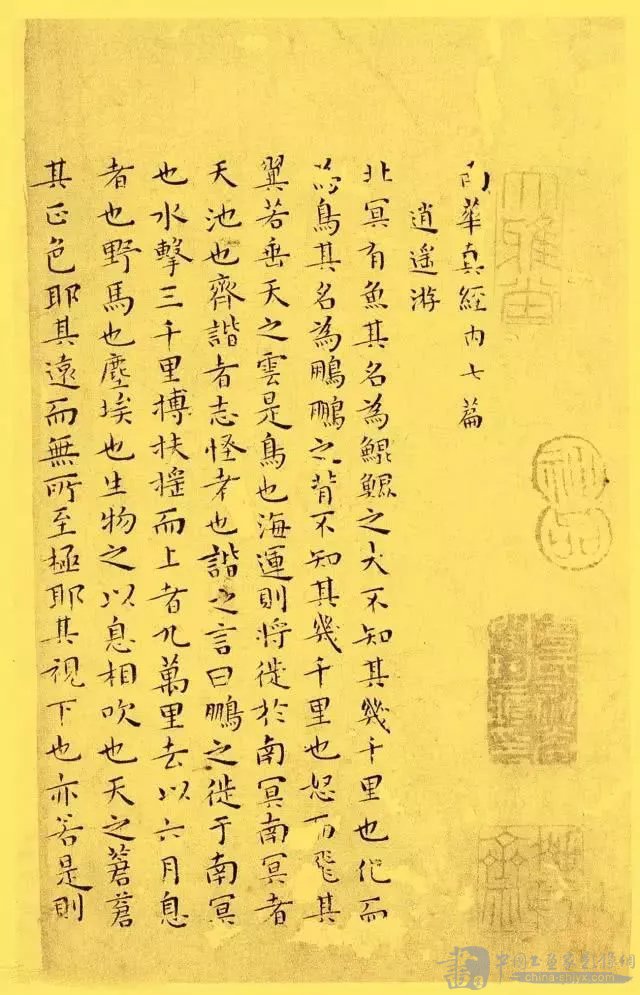 大雅堂
神品
南華真經內七篇
逍遥游
北冥有魚其名為鯤鯤之大不知其幾千里也化而
為鳥其名為鵬鵬之背不知其幾千里也怒而飛其
翼若垂天之雲是鳥也海運則將徙於南冥南冥者
天池也齊諧者志怪者也諧之言曰鵬之徙于南冥
也水擊三千里摶扶摇而上者九萬里去以六月息
者也野馬也塵埃也生物之以息相吹也天之蒼蒼
其正色耶其遠而無所至極耶其視下也亦若是則
china-shjyx.com